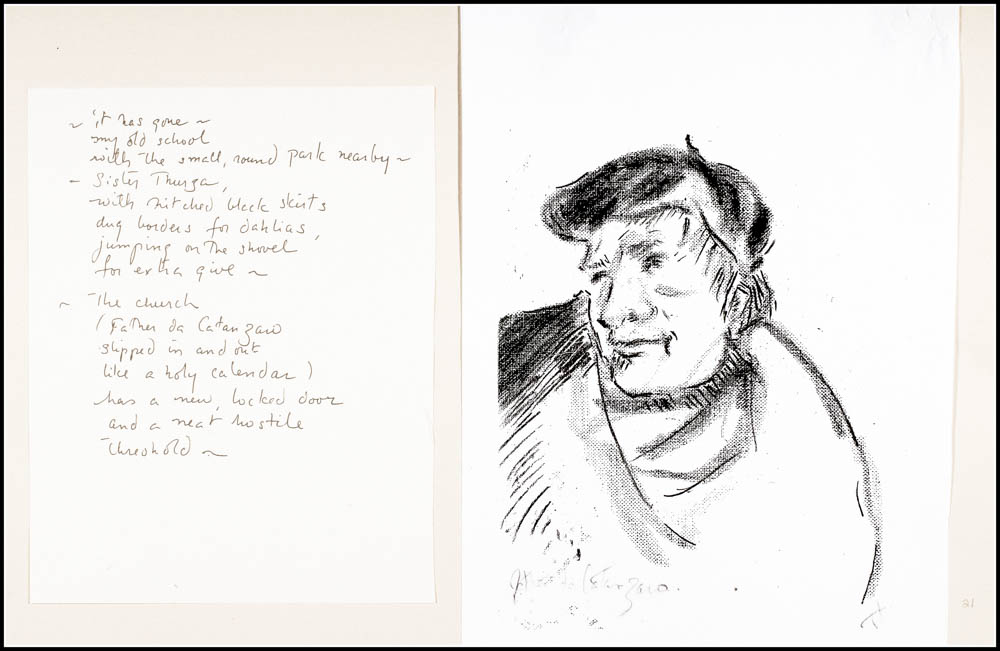 ~ it has gone ~
my old school
with the small, round park nearby ~
~ Sister Thurza,
with hitched black skirts
dug borders for dahlias,
jumping on the shovel
for extra give ~
~ The church
(Father da Catanzaro
slipped in and out
like a holy calendar)
has a new, locked door
and a neat hostile
threshold ~
da Catanzaro.
21